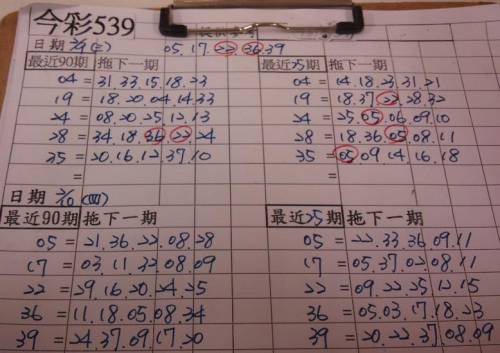 今彩539
日期 2/9(三) 05.17.22.36.39
最近90期 拖下一期 最近25期 拖下一期
04 = 31.33.15.18.23 04 = 14.18.23.31.21
19 = 18.20.04.14.33 19 = 18.37.22.28.32
24 = 08.20.25.12.13 24 = 25.05.06.09.10
28 = 34.18.36.22.24 28 = 18.36.05.08.11
35 = 20.16.12.37.10 35 = 05.09.14.16.18
= =
日期 2/10(四)
最近90期 拖下一期 最近25期 拖下一期
05 = 21.36.22.08.28 05 = 22.33.36.09.11
17 = 03.11.32.08.09 17 = 05.37.02.08.11
22 = 29.16.20.24.25 22 = 09.22.25.12.15
36 = 11.18.05.08.34 36 = 05.03.17.18.23
39 = 24.37.09.17.20 39 = 20.22.37.08.09